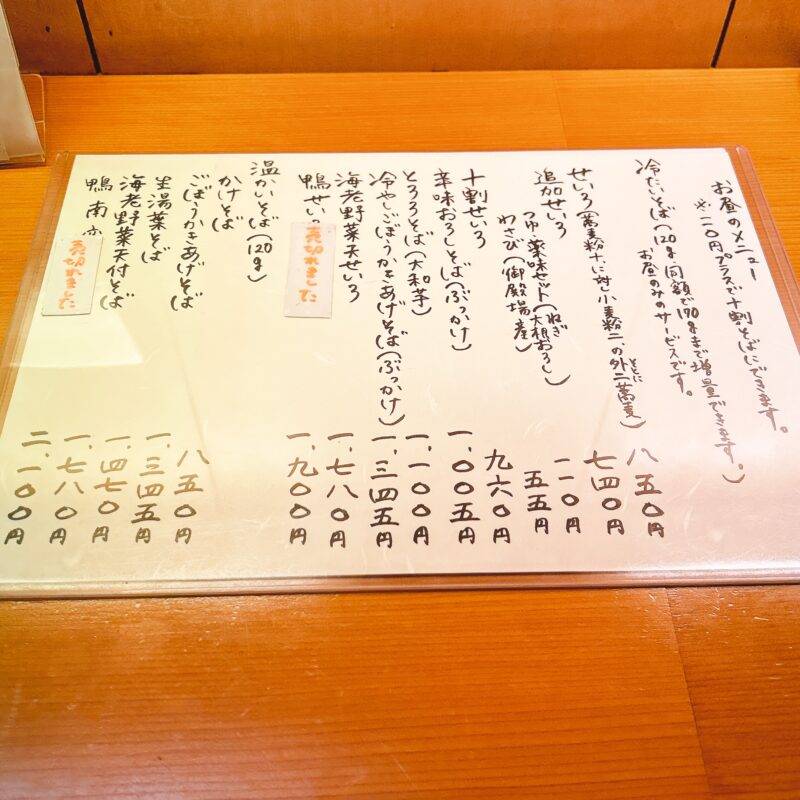 お昼のメニュー
※一一〇円プラスで十割そばにできます。
冷たいそば(120g 同額で170gまで増量できます。)
お昼のみのサービスです。
せいろ(蕎麦粉十、に対し小麦粉二、の外二蕎麦) 八五〇円
追加せいろ 七四〇円
つゆ、薬味セット(ねぎ 大根おろし) 一一〇円
わさび(御殿場産) 五五円
十割せいろ 九六〇円
辛味おろしそば(ぶっかけ) 一、〇〇五円
とろろそば(大和芋) 一、一〇〇円
冷やしごぼうかきあげそば(ぶっかけ) 一、三四五円
海老野菜天せいろ 一、七八〇円
鴨せいろ 一、九〇〇円
売切れました
温かいそば(120g)
かけそば 八五〇円
ごぼうかきあげそば 一、三四五円
生湯葉そば 一、四七〇円
海老野菜天付そば 一、七八〇円
鴨南 二、一〇〇円
売切れました